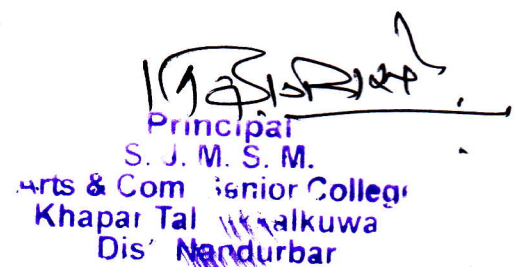 Principal
S. J. M. S. M.
Arts & Com Senior College
Khapar Tal alkuwa
Dis Nandurbar